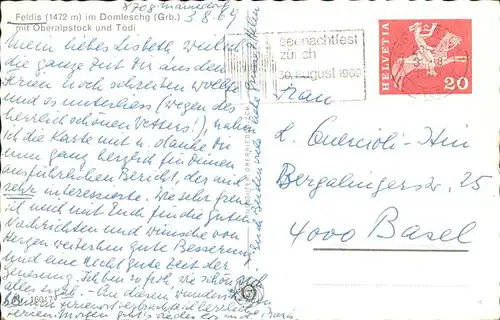 8708 Männedorf
Feldis (1472 m) im Domleschg (Grb.)
mit Oberalpstock und Tödi
3.8.69
Mein liebes Lisbeth, weil ich
die ganze Zeit Dir aus den
Ferien noch schreiben wollte
und es unterliess (wegen des
herrlich schönen Wetters!), nahm
ich die Karte mit u. danke Dir
nun ganz herzlich für Deinen
ausführlichen Bericht, der mich
sehr interessierte. Wie sehr freue
ich mich mit Euch für die guten
Nachrichten und wünsche von
Herzen weiterhin gute Besserung
und eine recht gute Zeit der
Genesung. Ich bin so froh, wie schön sich
alles
An diesem wunderschönen
herrliche
Euch Beiden viele liebe Grüsse
seenachtfest
zürich
30. august 1969
HELVETIA
20
Frau
L. Quercioli-
Bergalingerstr. 25
4000 Basel